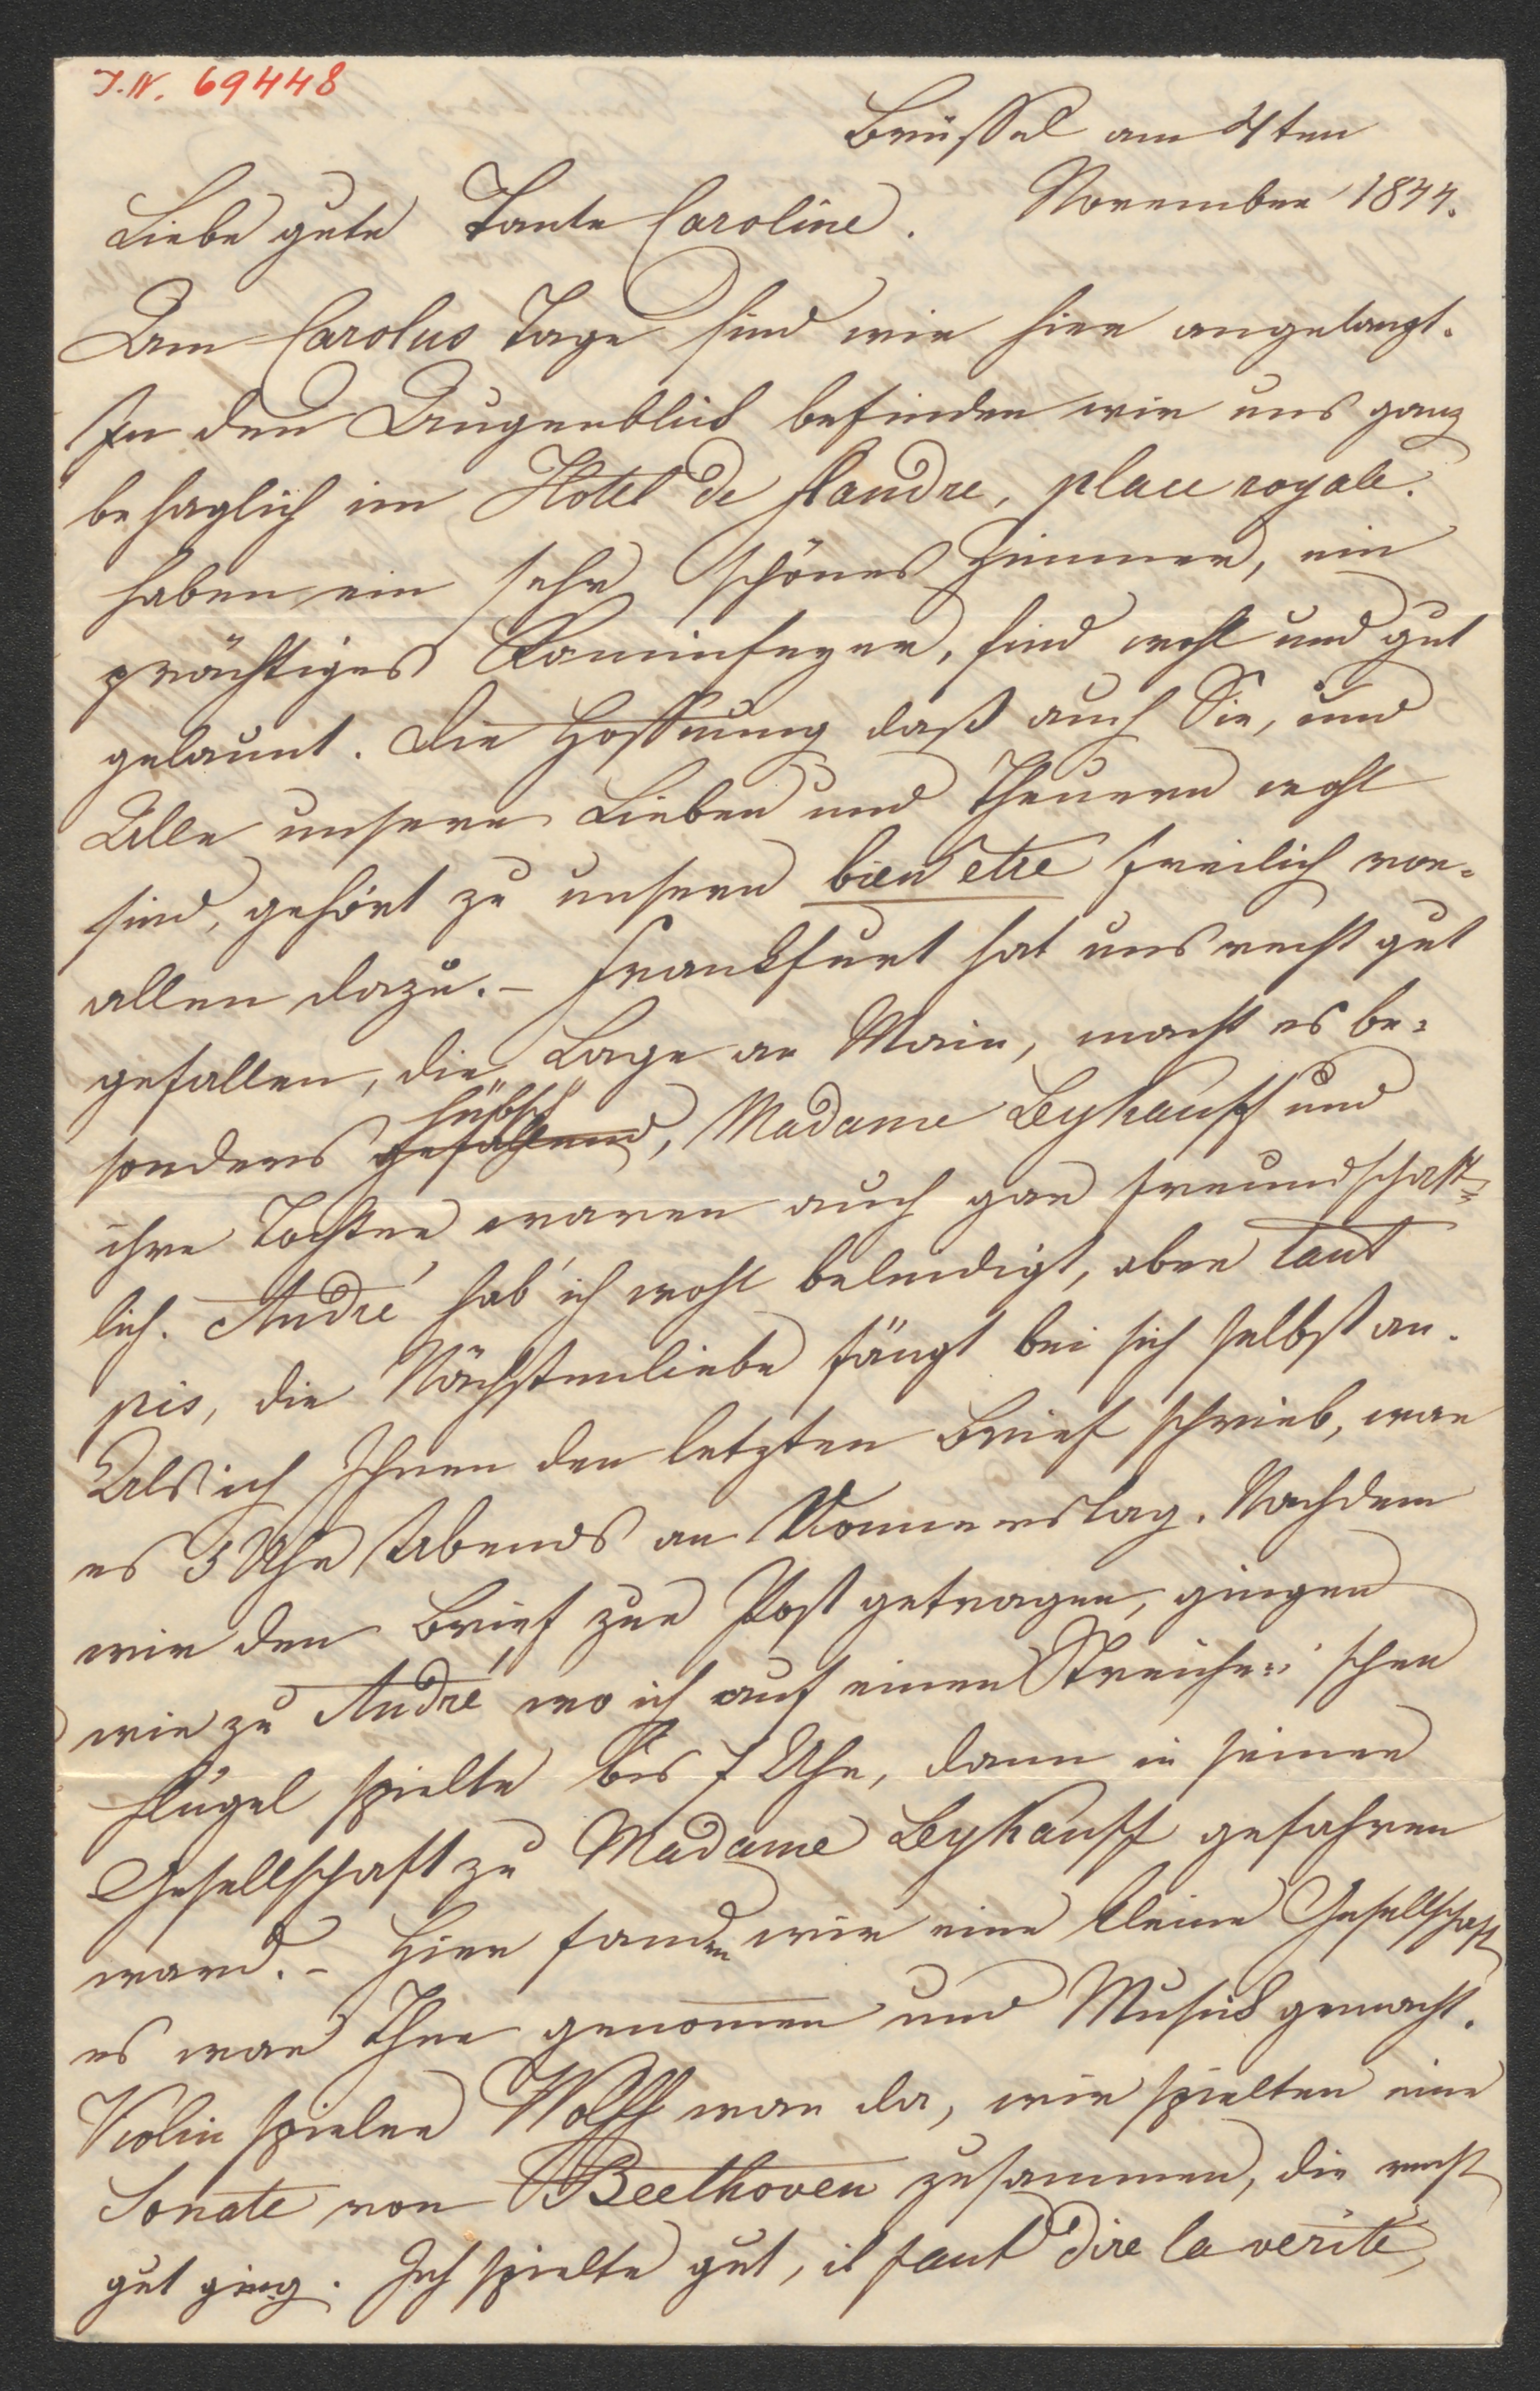 I.N. 69448
Brüssel am 4ten
November 1844.
Liebe gute Tante Caroline.
Am Carolus Tage sind wir hier angelangt.
In dem Augenblick befinden wir uns ganz
behaglich im Hotel de flandre, place royale.
haben ein sehr schönes Zimmer, ein
prächtiges Kaminfeuer, sind wohl und gut
gelaunt. Die Hoffnung daß auch Sie, und
Alle unsere Lieben und Theuern wohl
sind, gehört zu unsern bien etre freilich vor-
allen dazu. – Frankfurt hat uns recht gut
gefallen, die Lage am Main, macht es be-
hübsch
sonders gefallend, Madame Leykauff und
ihre Tochter waren auch gar freundschaft-
lich. André hab' ich wohl beleidigt, aber tant
pis, die Nächstenliebe fängt bei sich selbst an.
Als ich Ihnen den letzten Brief schrieb, war
es 5 Uhr Abends am Donnerstag. Nachdem
wir den Brief zur Post getragen, gingen
wir zu André wo ich auf einen Streicher'schen
Flügel spielte bis 7 Uhr, dann in seiner
Gesellschaft zu Madame Leykauff gefahren
ward. – Hier fanden wir eine kleine Gesellschaft
es war Thee genomen und Musik gemacht.
Violin spieler Wolff war da, wir spielten eine
Sonate von Beethoven zusammen, die recht
gut ging. Ich spielte gut, il faut dire la verité,